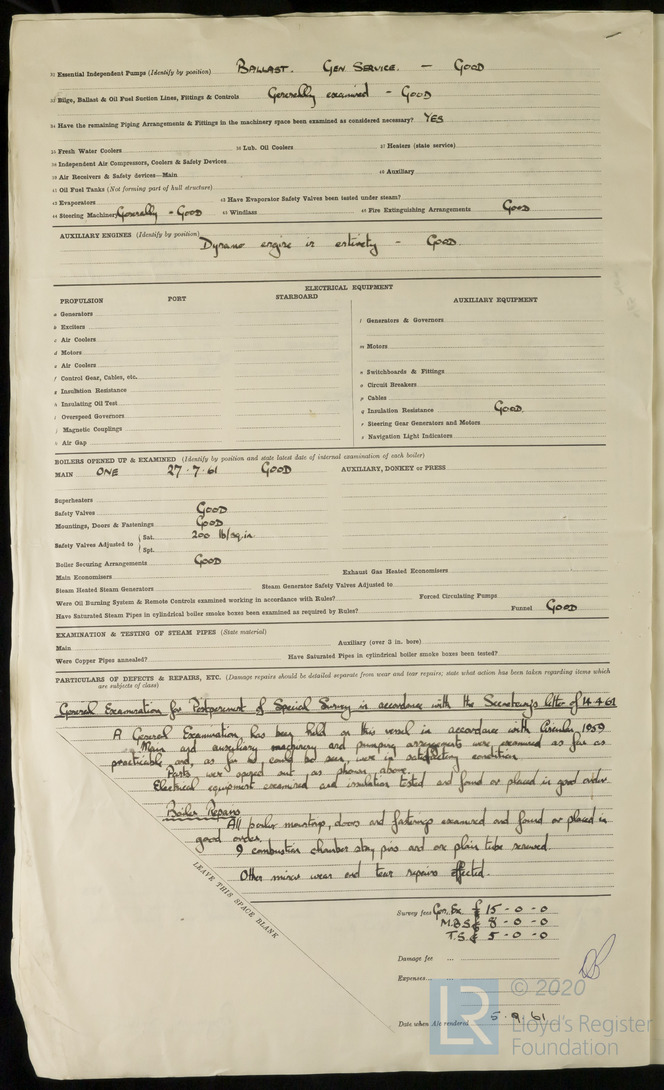 32 Essential Independent Pumps (Identify by position) BALLAST. GEN SERVICE. — GOOD
33 Bilge, Ballast & Oil Fuel Suction Lines, Fittings & Controls Generally examined - GOOD
34 Have the remaining Piping Arrangements & Fittings in the machinery space been examined as considered necessary? YES
35 Fresh Water Coolers 36 Lub. Oil Coolers 37 Heaters (state service)
38 Independent Air Compressors, Coolers & Safety Devices
39 Air Receivers & Safety devices—Main 40 Auxiliary
41 Oil Fuel Tanks (Not forming part of hull structure)
42 Evaporators 43 Have Evaporator Safety Valves been tested under steam?
44 Steering Machinery Generally - GOOD 45 Windlass 46 Fire Extinguishing Arrangements GOOD
AUXILIARY ENGINES (Identify by position) Dynamo engine in entirety - GOOD.
ELECTRICAL EQUIPMENT
PROPULSION PORT STARBOARD AUXILIARY EQUIPMENT
a Generators
b Exciters
c Air Coolers
d Motors
e Air Coolers
f Control Gear, Cables, etc.
g Insulation Resistance
h Insulating Oil Test
i Overspeed Governors
j Magnetic Couplings
k Air Gap
l Generators & Governors
m Motors
n Switchboards & Fittings
o Circuit Breakers
p Cables
q Insulation Resistance GOOD.
r Steering Gear Generators and Motors
s Navigation Light Indicators
BOILERS OPENED UP & EXAMINED (Identify by position and state latest date of internal examination of each boiler)
MAIN ONE 27·7·61 GOOD AUXILIARY, DONKEY or PRESS
Superheaters
Safety Valves GOOD
Mountings, Doors & Fastenings GOOD
Safety Valves Adjusted to Sat. 200 lb/sq.in.
Spt.
Boiler Securing Arrangements GOOD
Main Economisers Exhaust Gas Heated Economisers
Steam Heated Steam Generators Steam Generator Safety Valves Adjusted to
Were Oil Burning System & Remote Controls examined working in accordance with Rules? Forced Circulating Pumps
Have Saturated Steam Pipes in cylindrical boiler smoke boxes been examined as required by Rules? Funnel GOOD
EXAMINATION & TESTING OF STEAM PIPES (State material)
Main Auxiliary (over 3 in. bore)
Were Copper Pipes annealed? Have Saturated Pipes in cylindrical boiler smoke boxes been tested?
PARTICULARS OF DEFECTS & REPAIRS, ETC. (Damage repairs should be detailed separate from wear and tear repairs; state what action has been taken regarding items which
are subjects of class)
General Examination for Postponement of Special Survey in accordance with the Secretary's letter of 14.4.61
A General Examination, has been held on this vessel in accordance with Circular 1959
Main and auxiliary machinery and pumping arrangements were examined as far as
practicable and, as far as could be seen, were in satisfactory condition.
Parts were opened out as shown above.
Electrical equipment examined and insulation tested and found or placed in good order.
Boiler Repairs
All boiler mountings, doors and fastenings examined and found or placed in
good order.
9 combustion chamber stay pins and one plain tube renewed.
Other minor wear and tear repairs effected.
LEAVE THIS SPACE BLANK
Survey fees Gen. Ex. £ 15 - 0 - 0
M.B.S. £ 8 - 0 - 0
T.S. £ 5 - 0 - 0
Damage fee ...
Expenses...
Date when A/c rendered 5.9.61
LR © 2020
Lloyd's Register
Foundation